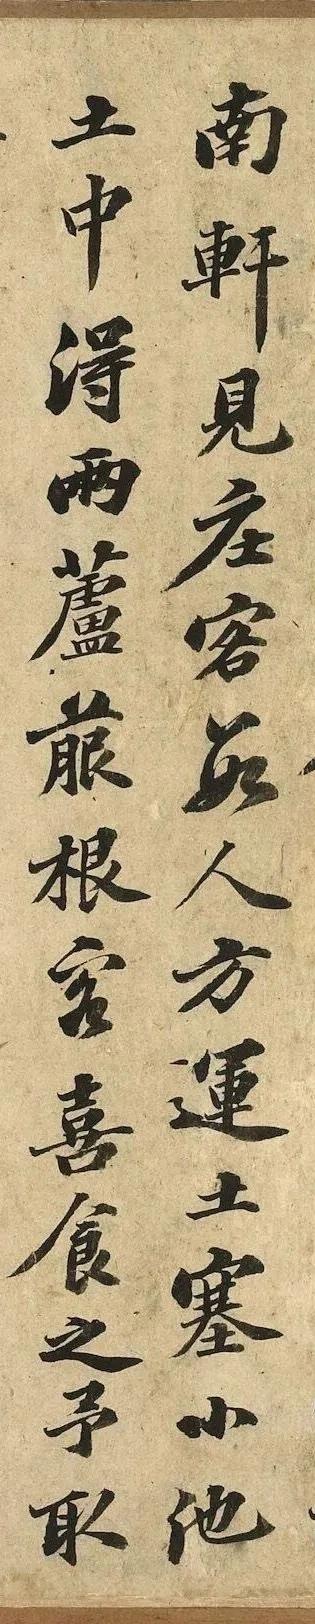 南軒見庄客數人方運土塞小池
土中得兩蘆菔根客喜食之予取